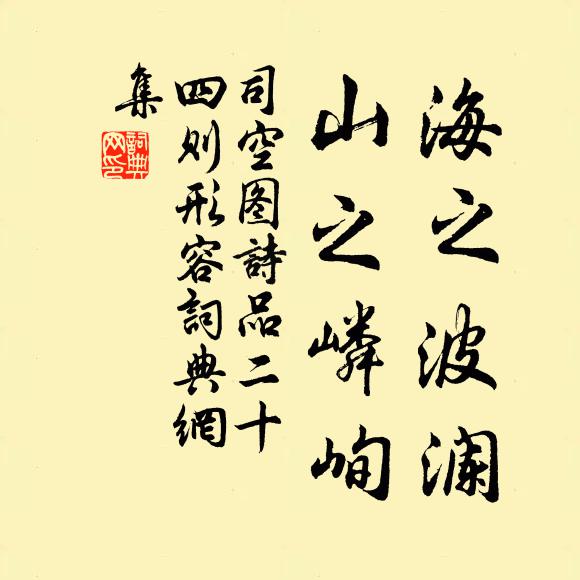 海之波澜
山之嶙峋
司空图詩品二十
四则形容詞典網
集
詞典
网印